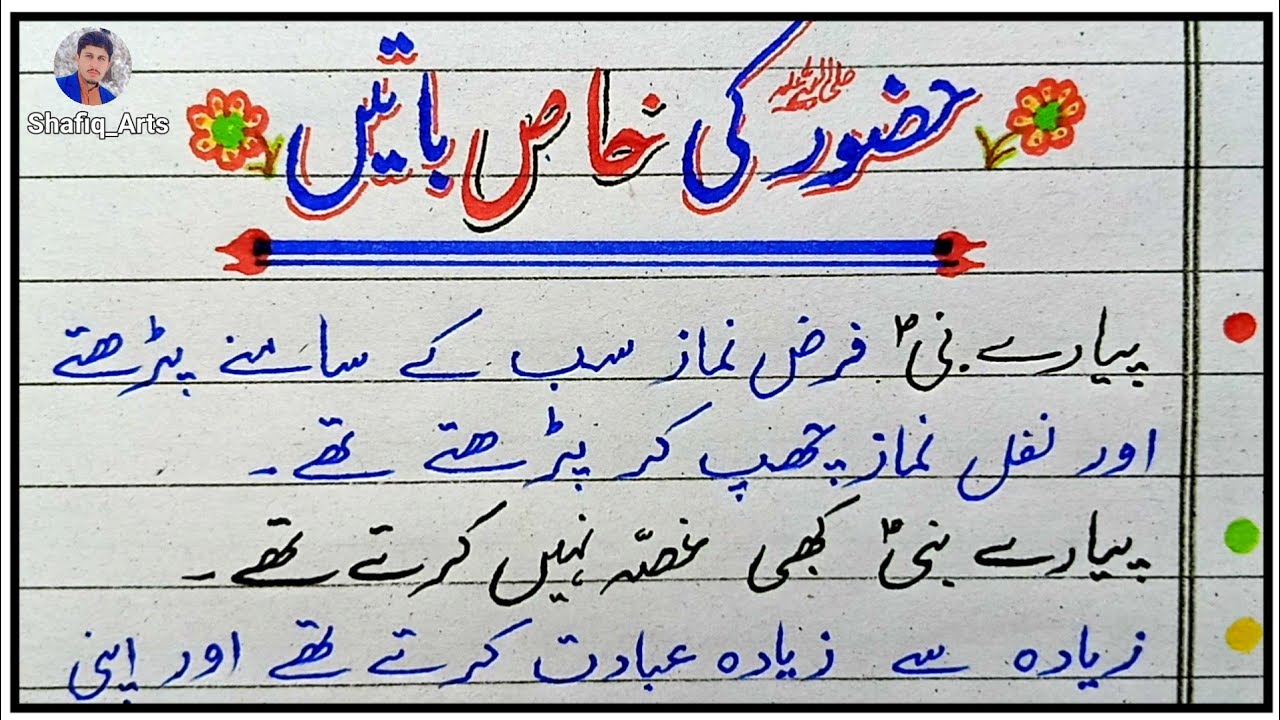 Shafiq_Arts
حضور صلی اللہ علیہ وسلم کی خاص باتیں
پیارے نبیؐ فرض نماز سب کے سامنے پڑھتے
اور نفل نماز چھپ کر پڑھتے تھے۔
پیارے نبیؐ کبھی غصّہ نہیں کرتے تھے۔
زیادہ سے زیادہ عبادت کرتے تھے اور اپنی